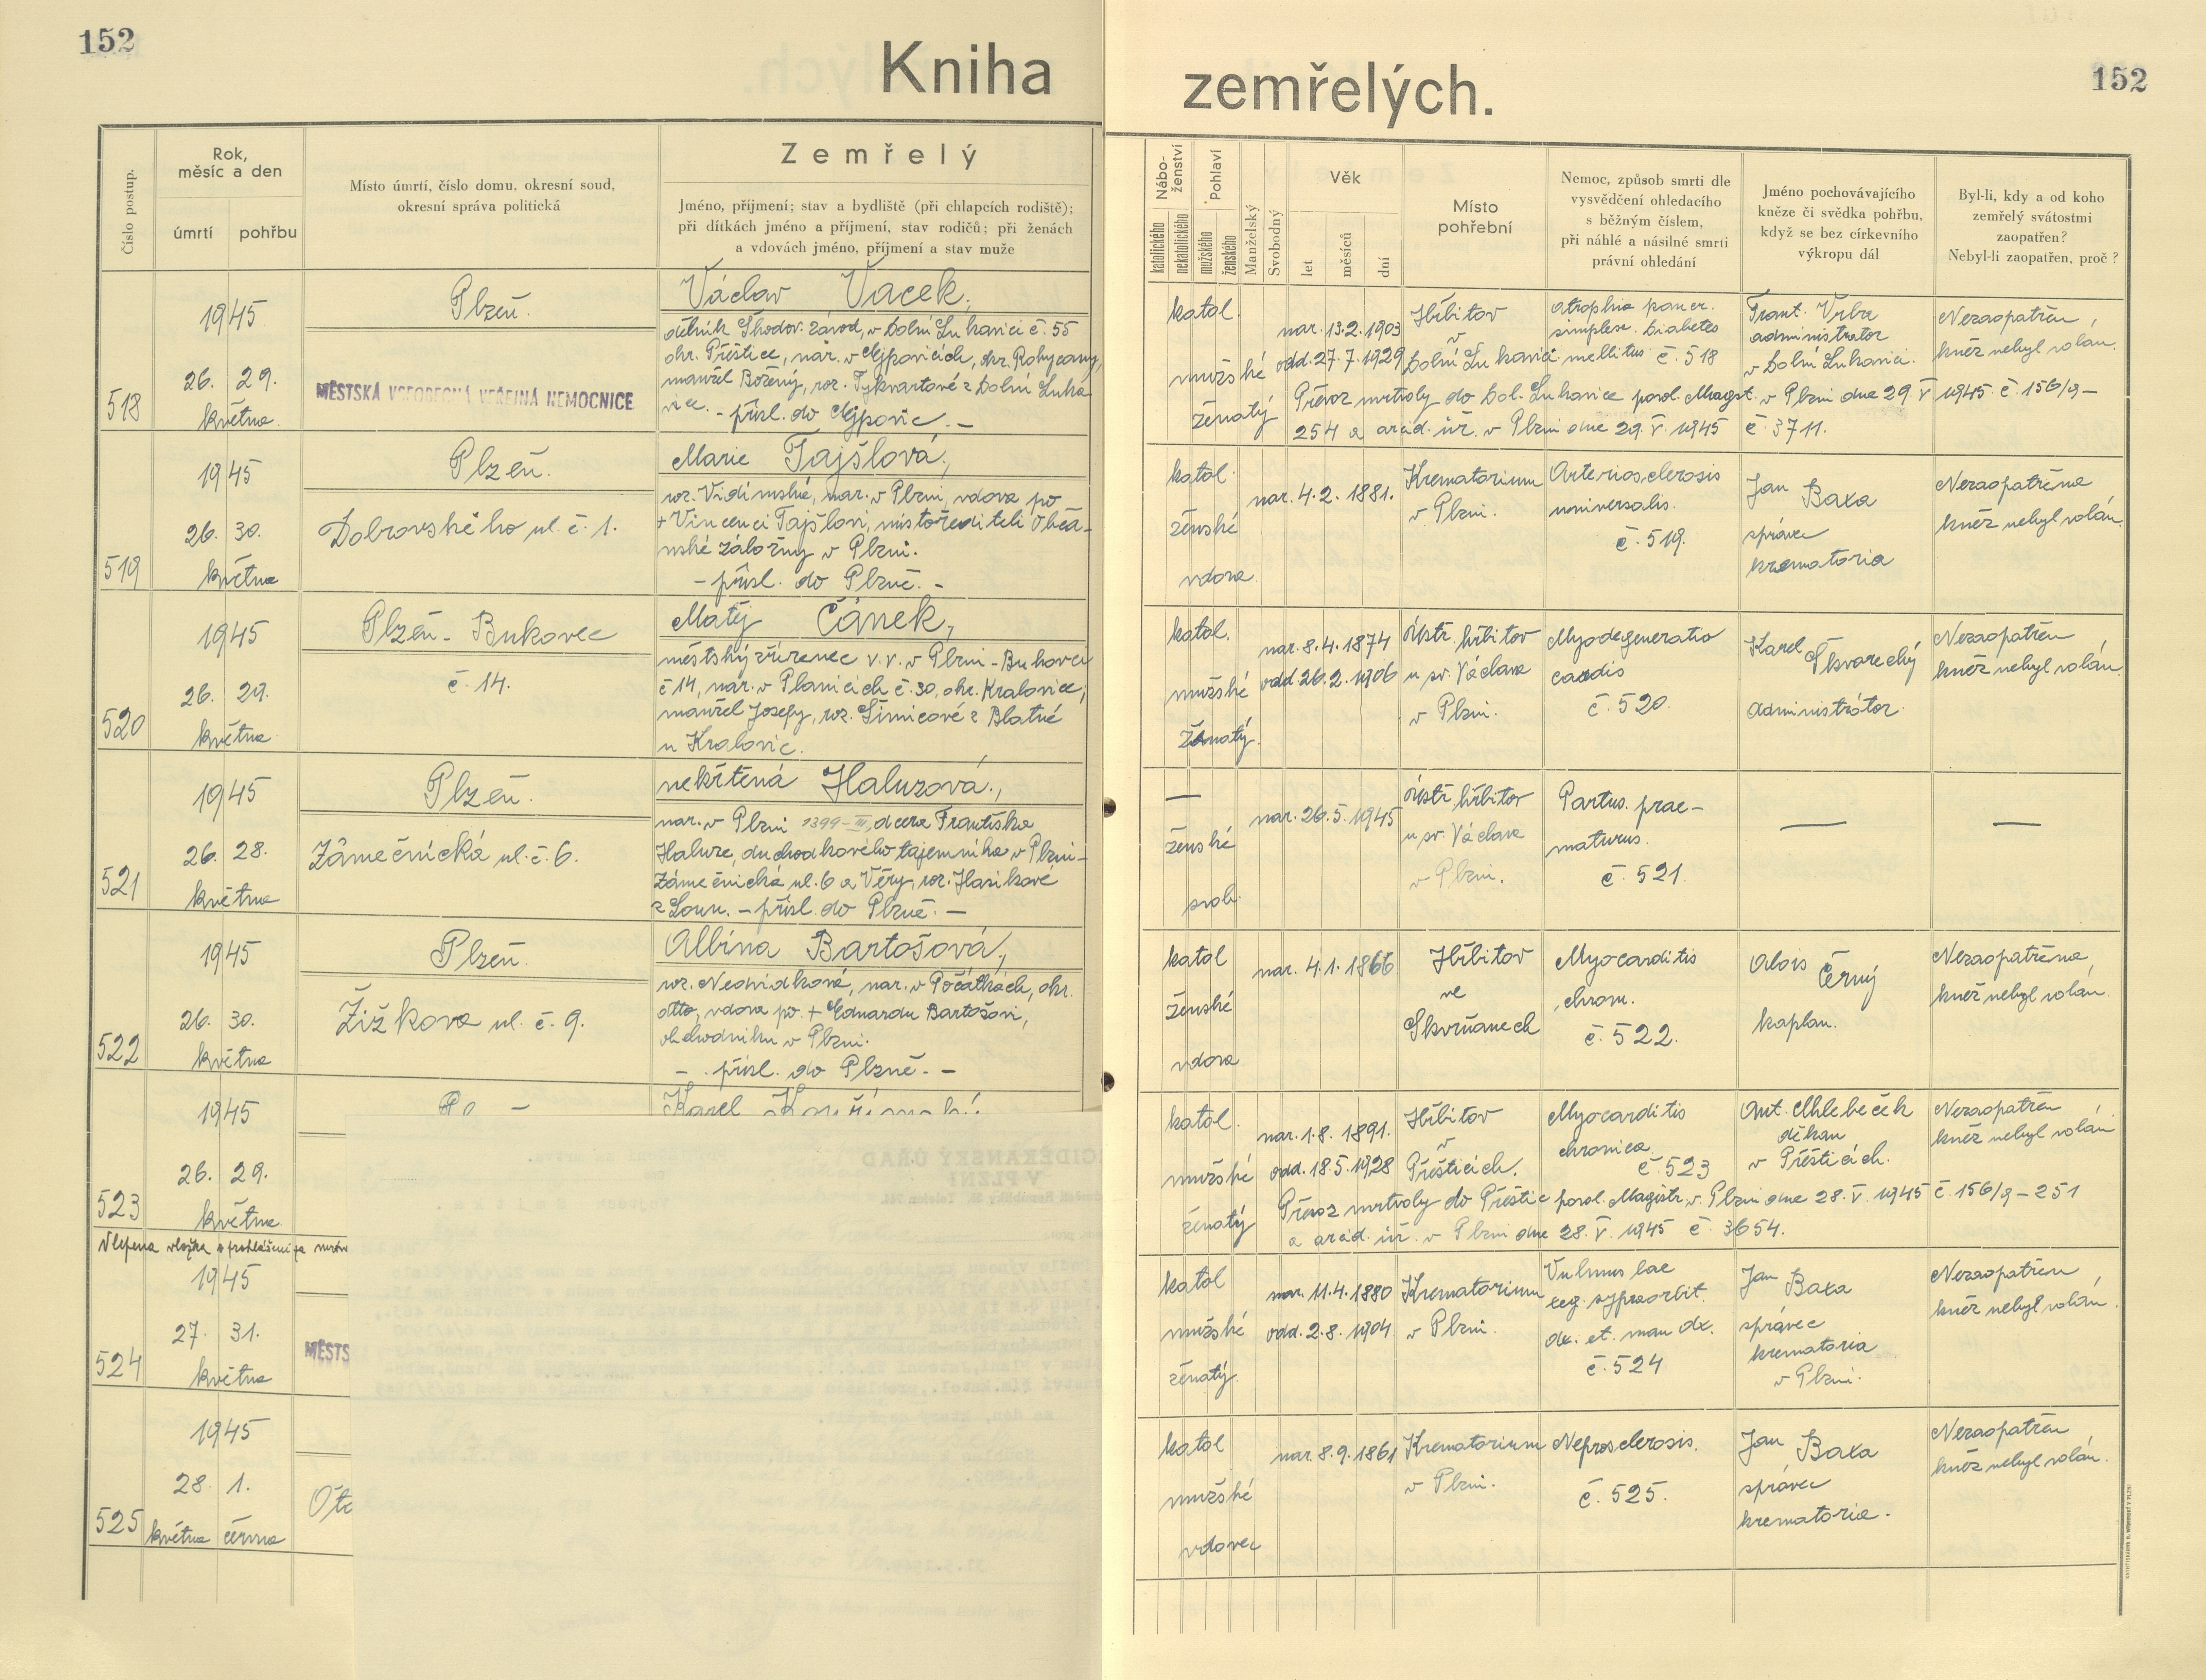 152
Kniha
zemřelých.
152
Číslo postup.
Rok,
měsíc a den
úmrtí
pohřbu
Místo úmrtí, číslo domu, okresní soud,
okresní správa politická
Zemřelý
Jméno, příjmení; stav a bydliště (při chlapcích rodiště);
při dítkách jméno a příjmení, stav rodičů; při ženách
a vdovách jméno, příjmení a stav muže
Nábo-
ženství
katolického
nekatolického
Pohlaví
mužského
ženského
Manželský
Svobodný
Věk
let
měsíců
dní
Místo
pohřební
Nemoc, způsob smrti dle
vysvědčení ohledacího
s běžným číslem,
při náhlé a násilné smrti
právní ohledání
Jméno pochovávajícího
kněze či svědka pohřbu,
když se bez církevního
výkropu dál
Byl-li, kdy a od koho
zemřelý svátostmi
zaopatřen?
Nebyl-li zaopatřen, proč?
518
1945
26. 29.
května
Plzeň.
MĚSTSKÁ VŠEOBECNÁ VEŘEJNÁ NEMOCNICE
Václav Vacek,
dělník Škodov. závod, v Dolní Lukavici č. 55
okr. Přeštice, nar. v Ejpovicích, okr. Rokycany,
manžel Boženy, roz. Tykvartové z Dolní Luka
vice. - přísl. do Ejpovic. -
katol.
mužské
ženatý
nar. 13.2.1903
odd. 27.7.1929
Hřbitov
v
Dolní Lukavici
atrophia pancr.
simplex. Diabetes
mellitus č. 518
Frant. Vrba
administrator
v Dolní Lukavici.
Nezaopatřen,
kněz nebyl volán.
Převoz mrtvoly do Dol. Lukavice povol. Magst. v Plzni dne 29. V. 1945 č. 156/9-
254 a arcid. úř. v Plzni dne 29. V. 1945 č. 3711.
519
1945
26. 30.
května
Plzeň.
Dobrovského ul. č. 1.
Marie Tajšlová,
roz. Vidimská, nar. v Plzni, vdova po
+ Vincenci Tajšlovi, místořediteli Občan-
ské záložny v Plzni.
- přísl. do Plzně. -
katol.
ženské
vdova
nar. 4.2. 1881.
Krematorium
v Plzni.
Arteriosclerosis
universalis.
č. 519.
Jan Baxa
správce
krematoria
Nezaopatřena
kněz nebyl volán.
520
1945
26. 29.
května
Plzeň - Bukovec
č. 14.
Matěj Čánek,
městský zřízenec v. v. v Plzni-Bukovci
č 14, nar. v Planicích č. 30, okr. Kralovice,
manžel Josefy, roz. Šimicové z Blatné
u Kralovic.
katol.
mužské
ženatý.
nar. 8.4.1874
odd. 26.2.1906
Ústř. hřbitov
u sv. Václava
v Plzni.
Myodegeneratio
cordis
č. 520.
Karel Škvorecký
administrátor
Nezaopatřen
kněz nebyl volán.
521
1945
26. 28.
května
Plzeň.
Zámečnická ul. č. 6.
nekřtěná Haluzová,
nar. v Plzni 1399-III, dcera Františka
Haluze, duchodkového tajemníka v Plzni-
Zámečnická ul. 6 a Věry, roz. Hasikové
z Loun. - přísl. do Plzně. -
—
ženské
svob.
nar. 26.5.1945
Ústř hřbitov
u sv. Václava
v Plzni.
Partus prae-
maturus.
č. 521.
—
—
522
1945
26. 30.
května
Plzeň.
Žižkova ul. č. 9.
Albína Bartošová,
nar. v Počátkách, okr.
dtto, vdova po + Eduardu Bartošovi,
obchodníku v Plzni.
- přísl. do Plzně. -
katol
ženské
vdova
nar. 4.1. 1866
Hřbitov
ve
Skvrňanech
Myocarditis
chron.
č. 522.
Alois Černý
kaplan.
Nezaopatřena,
kněz nebyl volán.
523
1945
26. 29.
května
Karel
katol.
mužské
ženatý
nar. 1.8. 1891.
odd. 18.5.1928
Hřbitov
v
Přešticích.
Myocarditis
chronica
č. 523
Ant. Chlebeček
děkan
v Přešticích.
Nezaopatřen
kněz nebyl volán
Převoz mrtvoly do Přeštic povol. Magistr. v Plzni dne 28. V. 1945 č. 156/9-251
a arcid. úř. v Plzni dne 28. V. 1945 č. 3654.
Vlepena vložka o prohlášení za mrtv
524
1945
27. 31.
května
MĚSTS
katol
mužské
ženatý.
nar. 11.4.1880
odd. 2.8.1904
Krematorium
v Plzni.
Vulnus lac
reg. supraorbit.
dx. et. man dx.
č. 524
Jan Baxa
správce
krematoria
v Plzni.
Nezaopatřen
kněz nebyl volán.
525
1945
28. 1.
května června
katol
mužské
vdovec
nar. 8.9.1861
Krematorium
v Plzni.
Nefrosclerosis.
č. 525.
Jan Baxa
správce
krematoria.
Nezaopatřen
kněz nebyl volán.